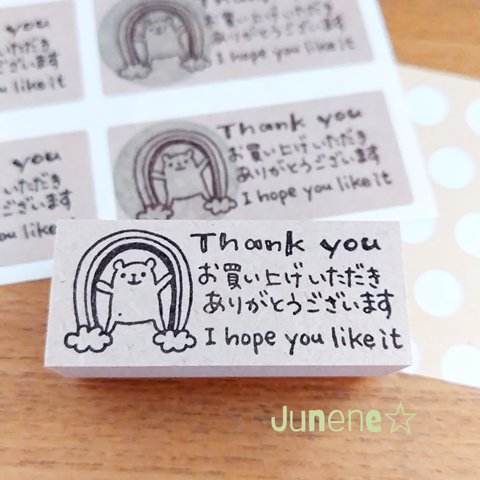 you
いただき
ございます
like it
Thank you
お買い上げいただき
ありがとうございます
I hope you like it
you
いただき
ございます
like it
Thank you
お買い上げいただき
ありがとうございます
I hope you like it
Thank you
お買い上げいただき
ありがとうございます
I hope you like it
Junene☆